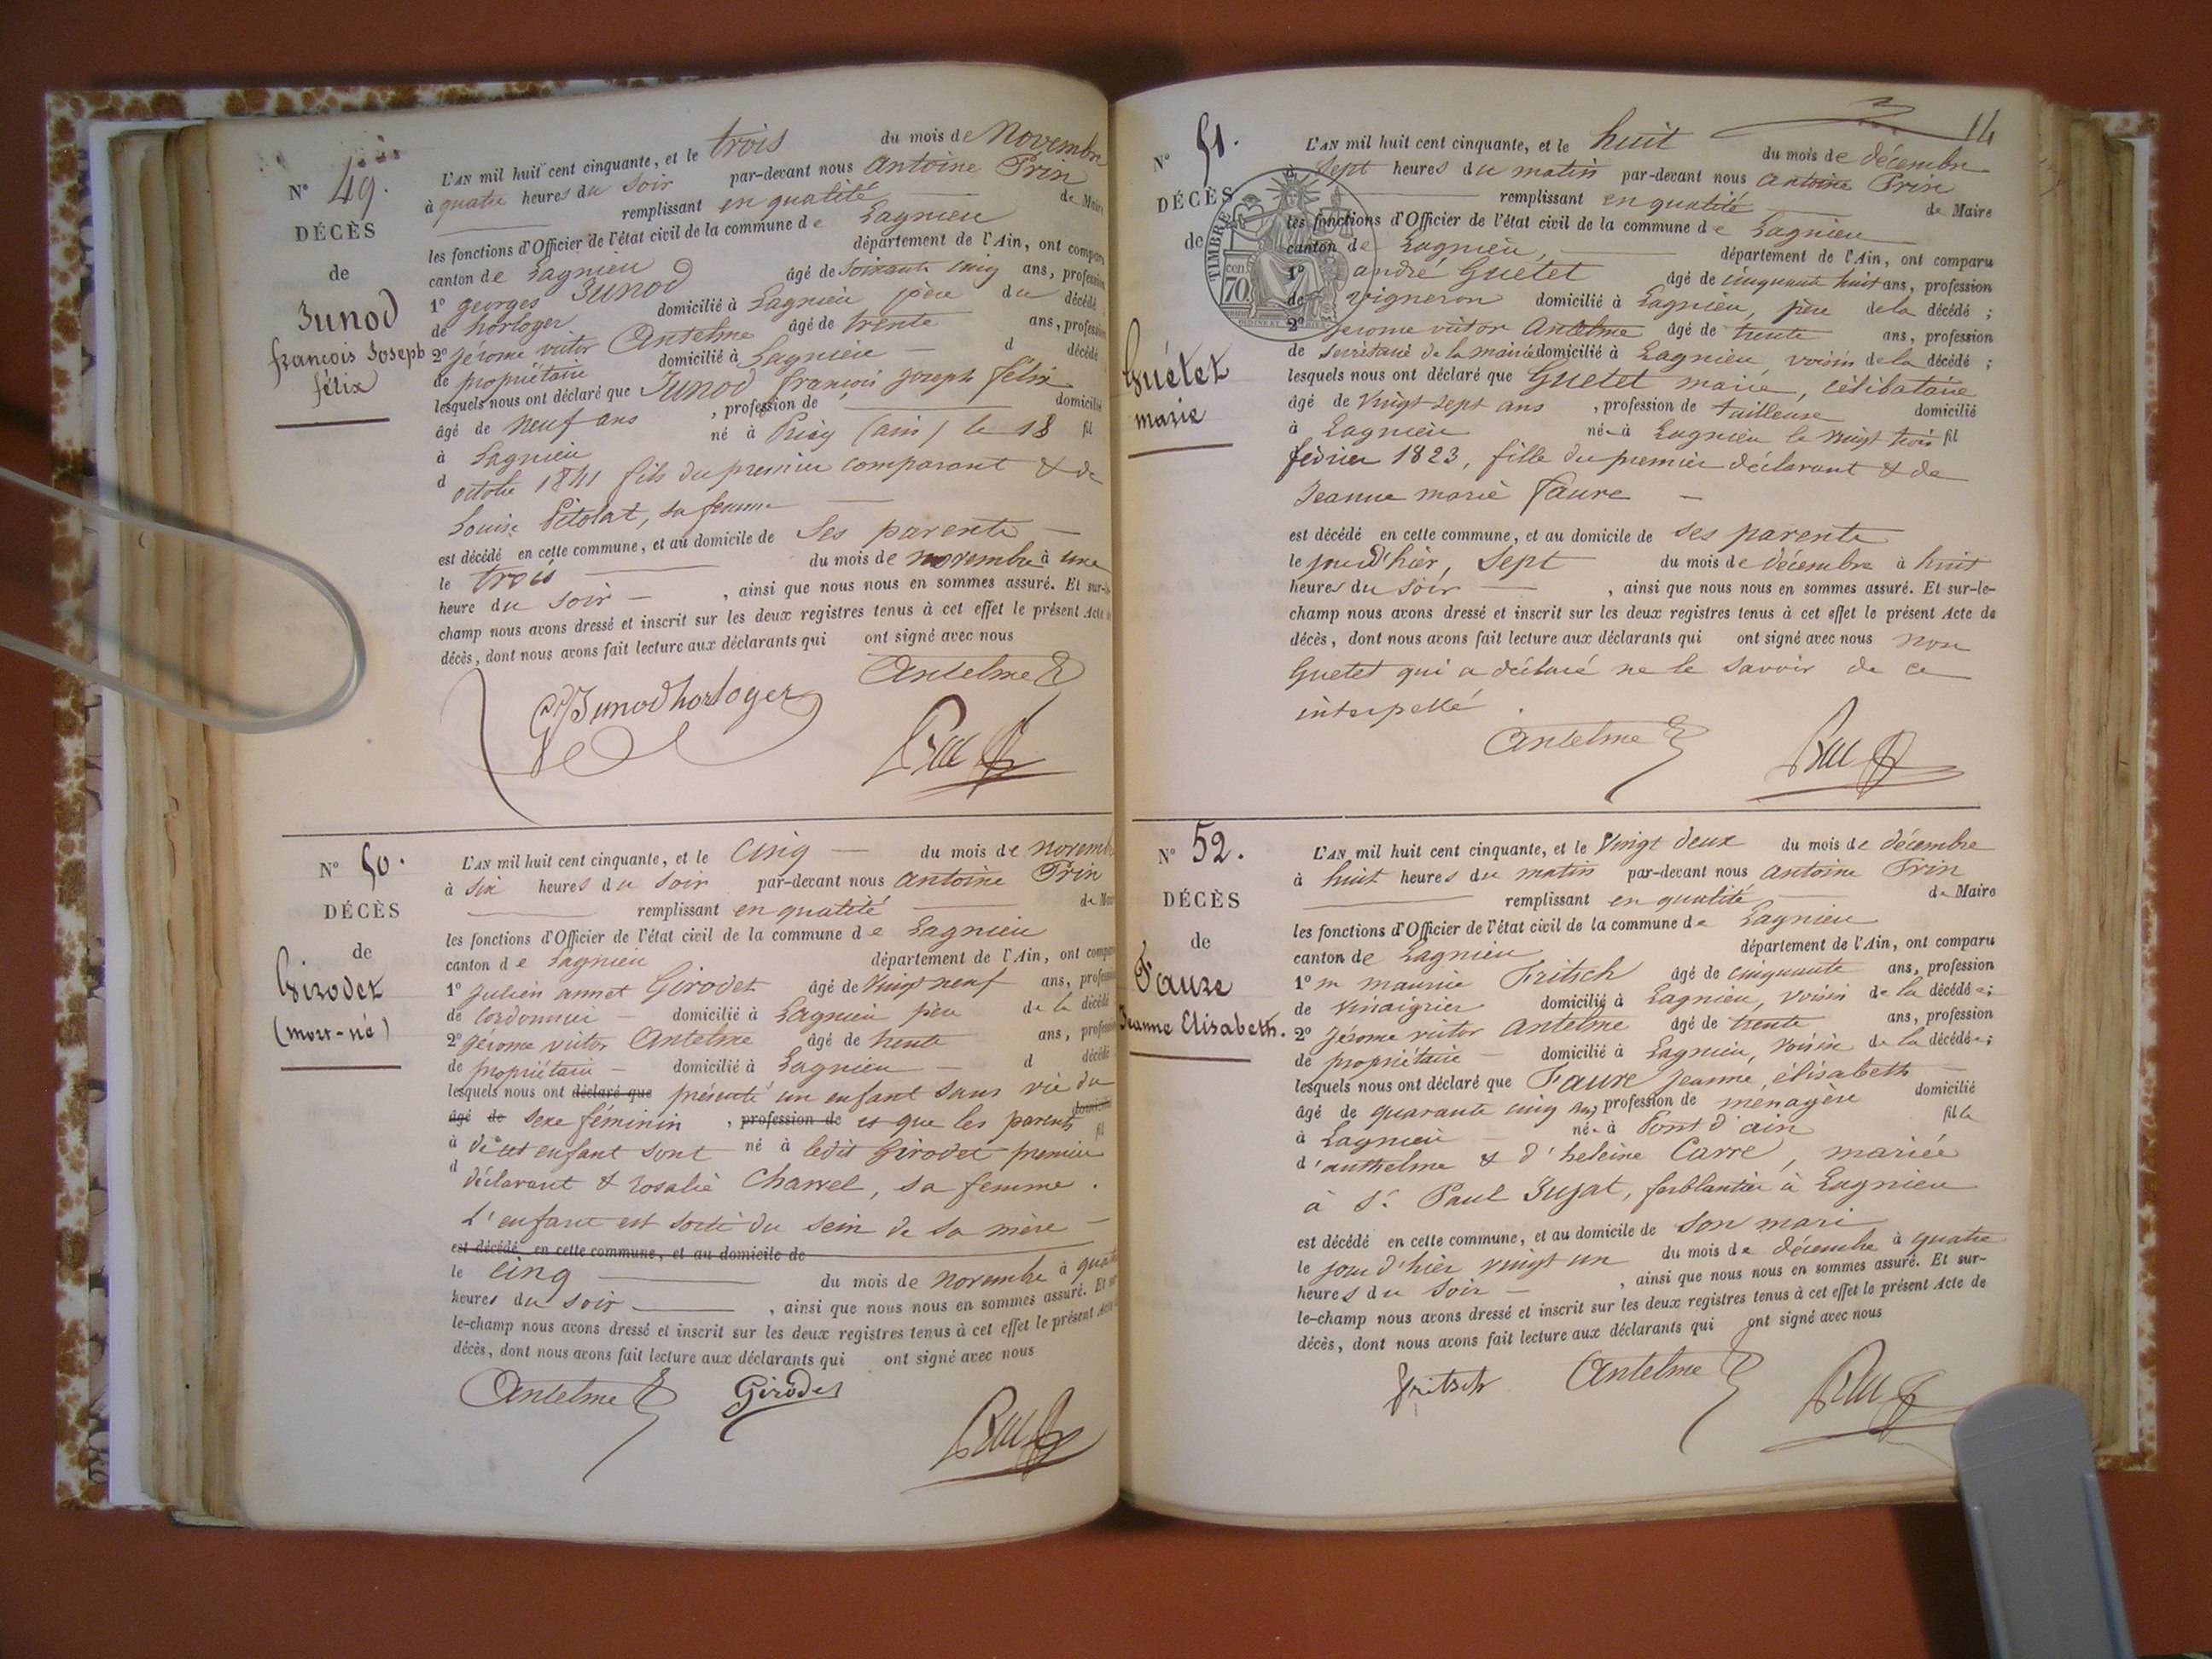 N° 49.
DÉCÈS
de
Junod
françois Joseph
félix
L'AN mil huit cent cinquante, et le trois du mois de Novembre
à quatre heures du soir par-devant nous antoine Prin
remplissant en qualité de Maire
les fonctions d'Officier de l'état civil de la commune de Lagnieu
canton de Lagnieu département de l'Ain, ont comparu
1° georges Junod âgé de soixante cinq ans, profession
de horloger domicilié à Lagnieu père du décédé
2° jérome victor Antelme âgé de trente ans, profession
de propriétaire domicilié à Lagnieu d décédé
lesquels nous ont déclaré que Junod françois joseph félix
âgé de neuf ans , profession de domicilié
à Lagnieu né à (ain) le 18 fil
d octobre 1841 fils du premier comparant & de
Louise Pitolat, sa femme
est décédé en cette commune, et au domicile de ses parents
le trois du mois de novembre à une
heure du soir , ainsi que nous nous en sommes assuré. Et sur-le-
champ nous avons dressé et inscrit sur les deux registres tenus à cet effet le présent Acte de
décès, dont nous avons fait lecture aux déclarants qui ont signé avec nous
Antelme
Junod horloger
N° 50.
DÉCÈS
de
Girodet
(mort-né)
L'AN mil huit cent cinquante, et le cinq du mois de novembre
à six heures du soir par-devant nous antoine Prin
remplissant en qualité de Maire
les fonctions d'Officier de l'état civil de la commune de Lagnieu
canton de Lagnieu département de l'Ain, ont comparu
1° julien annet Girodet âgé de vingt neuf ans, profession
de cordonnier domicilié à Lagnieu père de la décédé
2° gérome victor Antelme âgé de trente ans, profession
de propriétaire domicilié à Lagnieu d décédé
lesquels nous ont déclaré que présenté un enfant sans vie du
âgé de sexe féminin , profession de et que les parents domicilié
à de cet enfant sont né à ledit Girodet premier fil
d déclarant & rosalie Charvel, sa femme.
L'enfant est sorti du sein de sa mère
est décédé en cette commune, et au domicile de
le cinq du mois de novembre à quatre
heures du soir , ainsi que nous nous en sommes assuré. Et sur-
le-champ nous avons dressé et inscrit sur les deux registres tenus à cet effet le présent Acte de
décès, dont nous avons fait lecture aux déclarants qui ont signé avec nous
Antelme Girodet
14
N° 51.
DÉCÈS
de
Guétet
marie
TIMBRE
cen
70
L'AN mil huit cent cinquante, et le huit du mois de décembre
à sept heures du matin par-devant nous antoine Prin
remplissant en qualité de Maire
les fonctions d'Officier de l'état civil de la commune de Lagnieu
canton de Lagnieu, département de l'Ain, ont comparu
1° andré Guétet âgé de cinquante huit ans, profession
de vigneron domicilié à Lagnieu, père de la décédé ;
2° jerome victor Antelme âgé de trente ans, profession
de secrétaire de la mairie domicilié à Lagnieu, voisin de la décédé ;
lesquels nous ont déclaré que Guetet marie, célibataire
âgé de vingt sept ans , profession de tailleuse domicilié
à Lagnieu née à Lagnieu le vingt trois fil
février 1823, fille du premier déclarant & de
Jeanne marie Faure
est décédé en cette commune, et au domicile de ses parents
le jour d'hier, sept du mois de décembre à huit
heures du soir , ainsi que nous nous en sommes assuré. Et sur-le-
champ nous avons dressé et inscrit sur les deux registres tenus à cet effet le présent Acte de
décès, dont nous avons fait lecture aux déclarants qui ont signé avec nous non
Guetet qui a déclaré ne le savoir de ce
interpellé.
Antelme
N° 52.
DÉCÈS
de
Faure
Jeanne Elisabeth.
L'AN mil huit cent cinquante, et le vingt deux du mois de décembre
à huit heures du matin par-devant nous antoine Prin
remplissant en qualité de Maire
les fonctions d'Officier de l'état civil de la commune de Lagnieu
canton de Lagnieu département de l'Ain, ont comparu
1° m maurice Fritsch âgé de cinquante ans, profession
de vinaigrier domicilié à Lagnieu, voisin de la décédée ;
2° Jérome victor Antelme âgé de trente ans, profession
de propriétaire domicilié à Lagnieu, voisin de la décédée ;
lesquels nous ont déclaré que Faure jeanne élisabeth
âgé de quarante cinq ans profession de ménagère domicilié
à Lagnieu née à Pont d'ain fille
d'anthelme & d'heleine Carre, mariée
à S. Paul Jujat, ferblantier à Lagnieu
est décédé en cette commune, et au domicile de son mari
le jour d'hier vingt un du mois de décembre à quatre
heures du soir , ainsi que nous nous en sommes assuré. Et sur-
le-champ nous avons dressé et inscrit sur les deux registres tenus à cet effet le présent Acte de
décès, dont nous avons fait lecture aux déclarants qui ont signé avec nous
fritsch Antelme